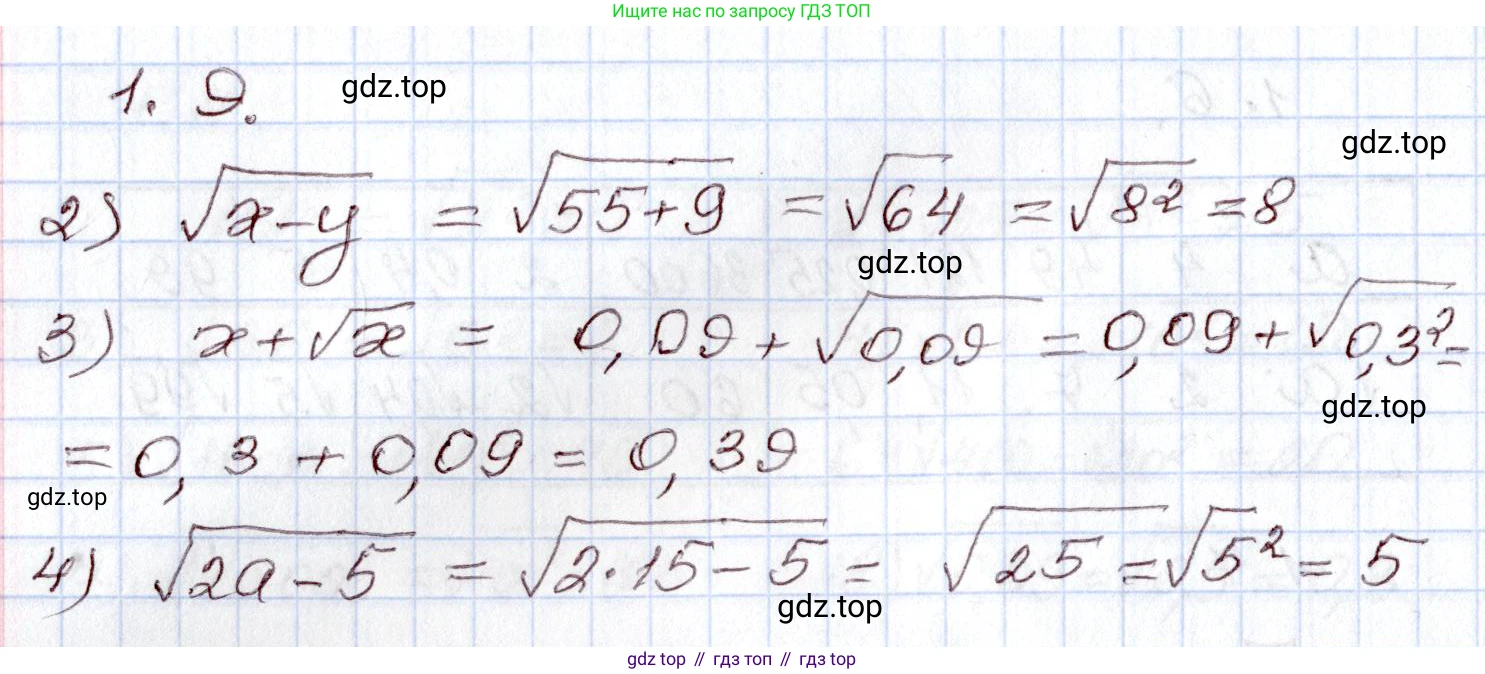 Ищите нас по запросу ГДЗ ТОП
1. 9. gdz.top
gdz.top
2) √(x-y) = √(55+9) = √64 = √8² = 8
gdz.top
3) x+√x = 0,09 + √0,09 = 0,09 + √0,3² =
gdz.top
= 0,3 + 0,09 = 0,39
gdz.top
4) √(2a-5) = √(2·15-5) = √25 = √5² = 5
gdz.top
gdz top // гдз топ // гдз top